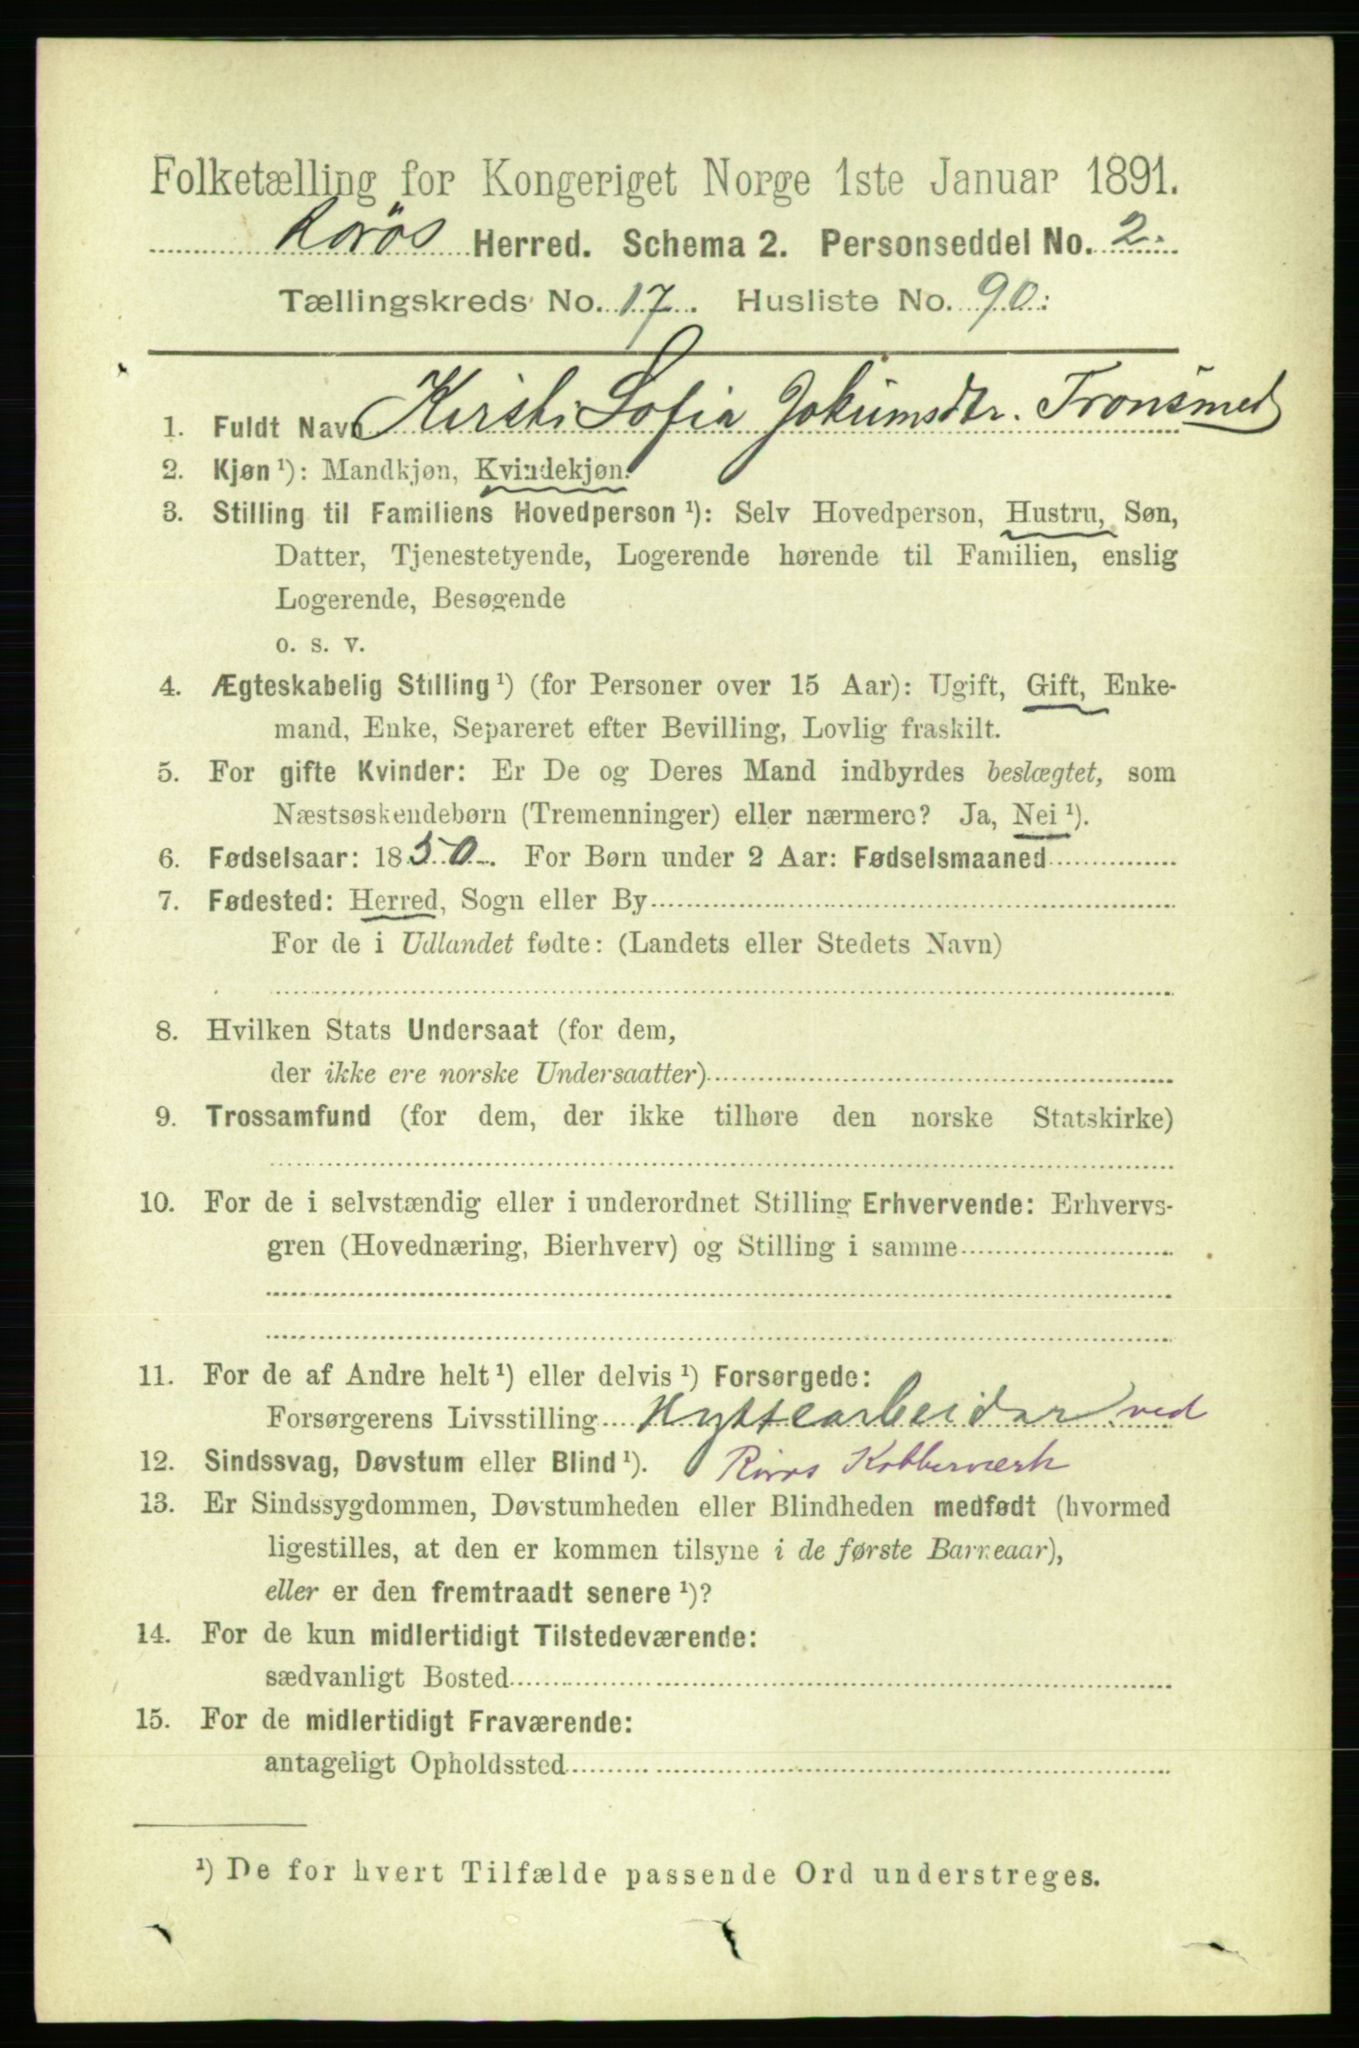 Folketælling for Kongeriget Norge 1ste Januar 1891.
Rørös Herred. Schema 2. Personseddel No. 2.
Tællingskreds No. 17. Husliste No. 90.
1. Fuldt Navn Kirsti Sofia Jokumsdtr. Tronsmed
2. Kjøn ¹): Mandkjøn, Kvindekjøn.
3. Stilling til Familiens Hovedperson ¹): Selv Hovedperson, Hustru, Søn,
Datter, Tjenestetyende, Logerende hørende til Familien, enslig
Logerende, Besøgende
o. s. v.
4. Ægteskabelig Stilling ¹) (for Personer over 15 Aar): Ugift, Gift, Enke-
mand, Enke, Separeret efter Bevilling, Lovlig fraskilt.
5. For gifte Kvinder: Er De og Deres Mand indbyrdes beslægtet, som
Næstsøskendebørn (Tremenninger) eller nærmere? Ja, Nei ¹).
6. Fødselsaar: 1850. For Børn under 2 Aar: Fødselsmaaned
7. Fødested: Herred, Sogn eller By
For de i Udlandet fødte: (Landets eller Stedets Navn)
8. Hvilken Stats Undersaat (for dem,
der ikke ere norske Undersaatter)
9. Trossamfund (for dem, der ikke tilhøre den norske Statskirke)
10. For de i selvstændig eller i underordnet Stilling Erhvervende: Erhvervs-
gren (Hovednæring, Bierhverv) og Stilling i samme
11. For de af Andre helt ¹) eller delvis ¹) Forsørgede:
Forsørgerens Livsstilling Hyttearbeider ved
12. Sindssvag, Døvstum eller Blind ¹). Röros Kobberværk
13. Er Sindssygdommen, Døvstumheden eller Blindheden medfødt (hvormed
ligestilles, at den er kommen tilsyne i de første Barneaar),
eller er den fremtraadt senere ¹)?
14. For de kun midlertidigt Tilstedeværende:
sædvanligt Bosted
15. For de midlertidigt Fraværende:
antageligt Opholdssted
¹) De for hvert Tilfælde passende Ord understreges.